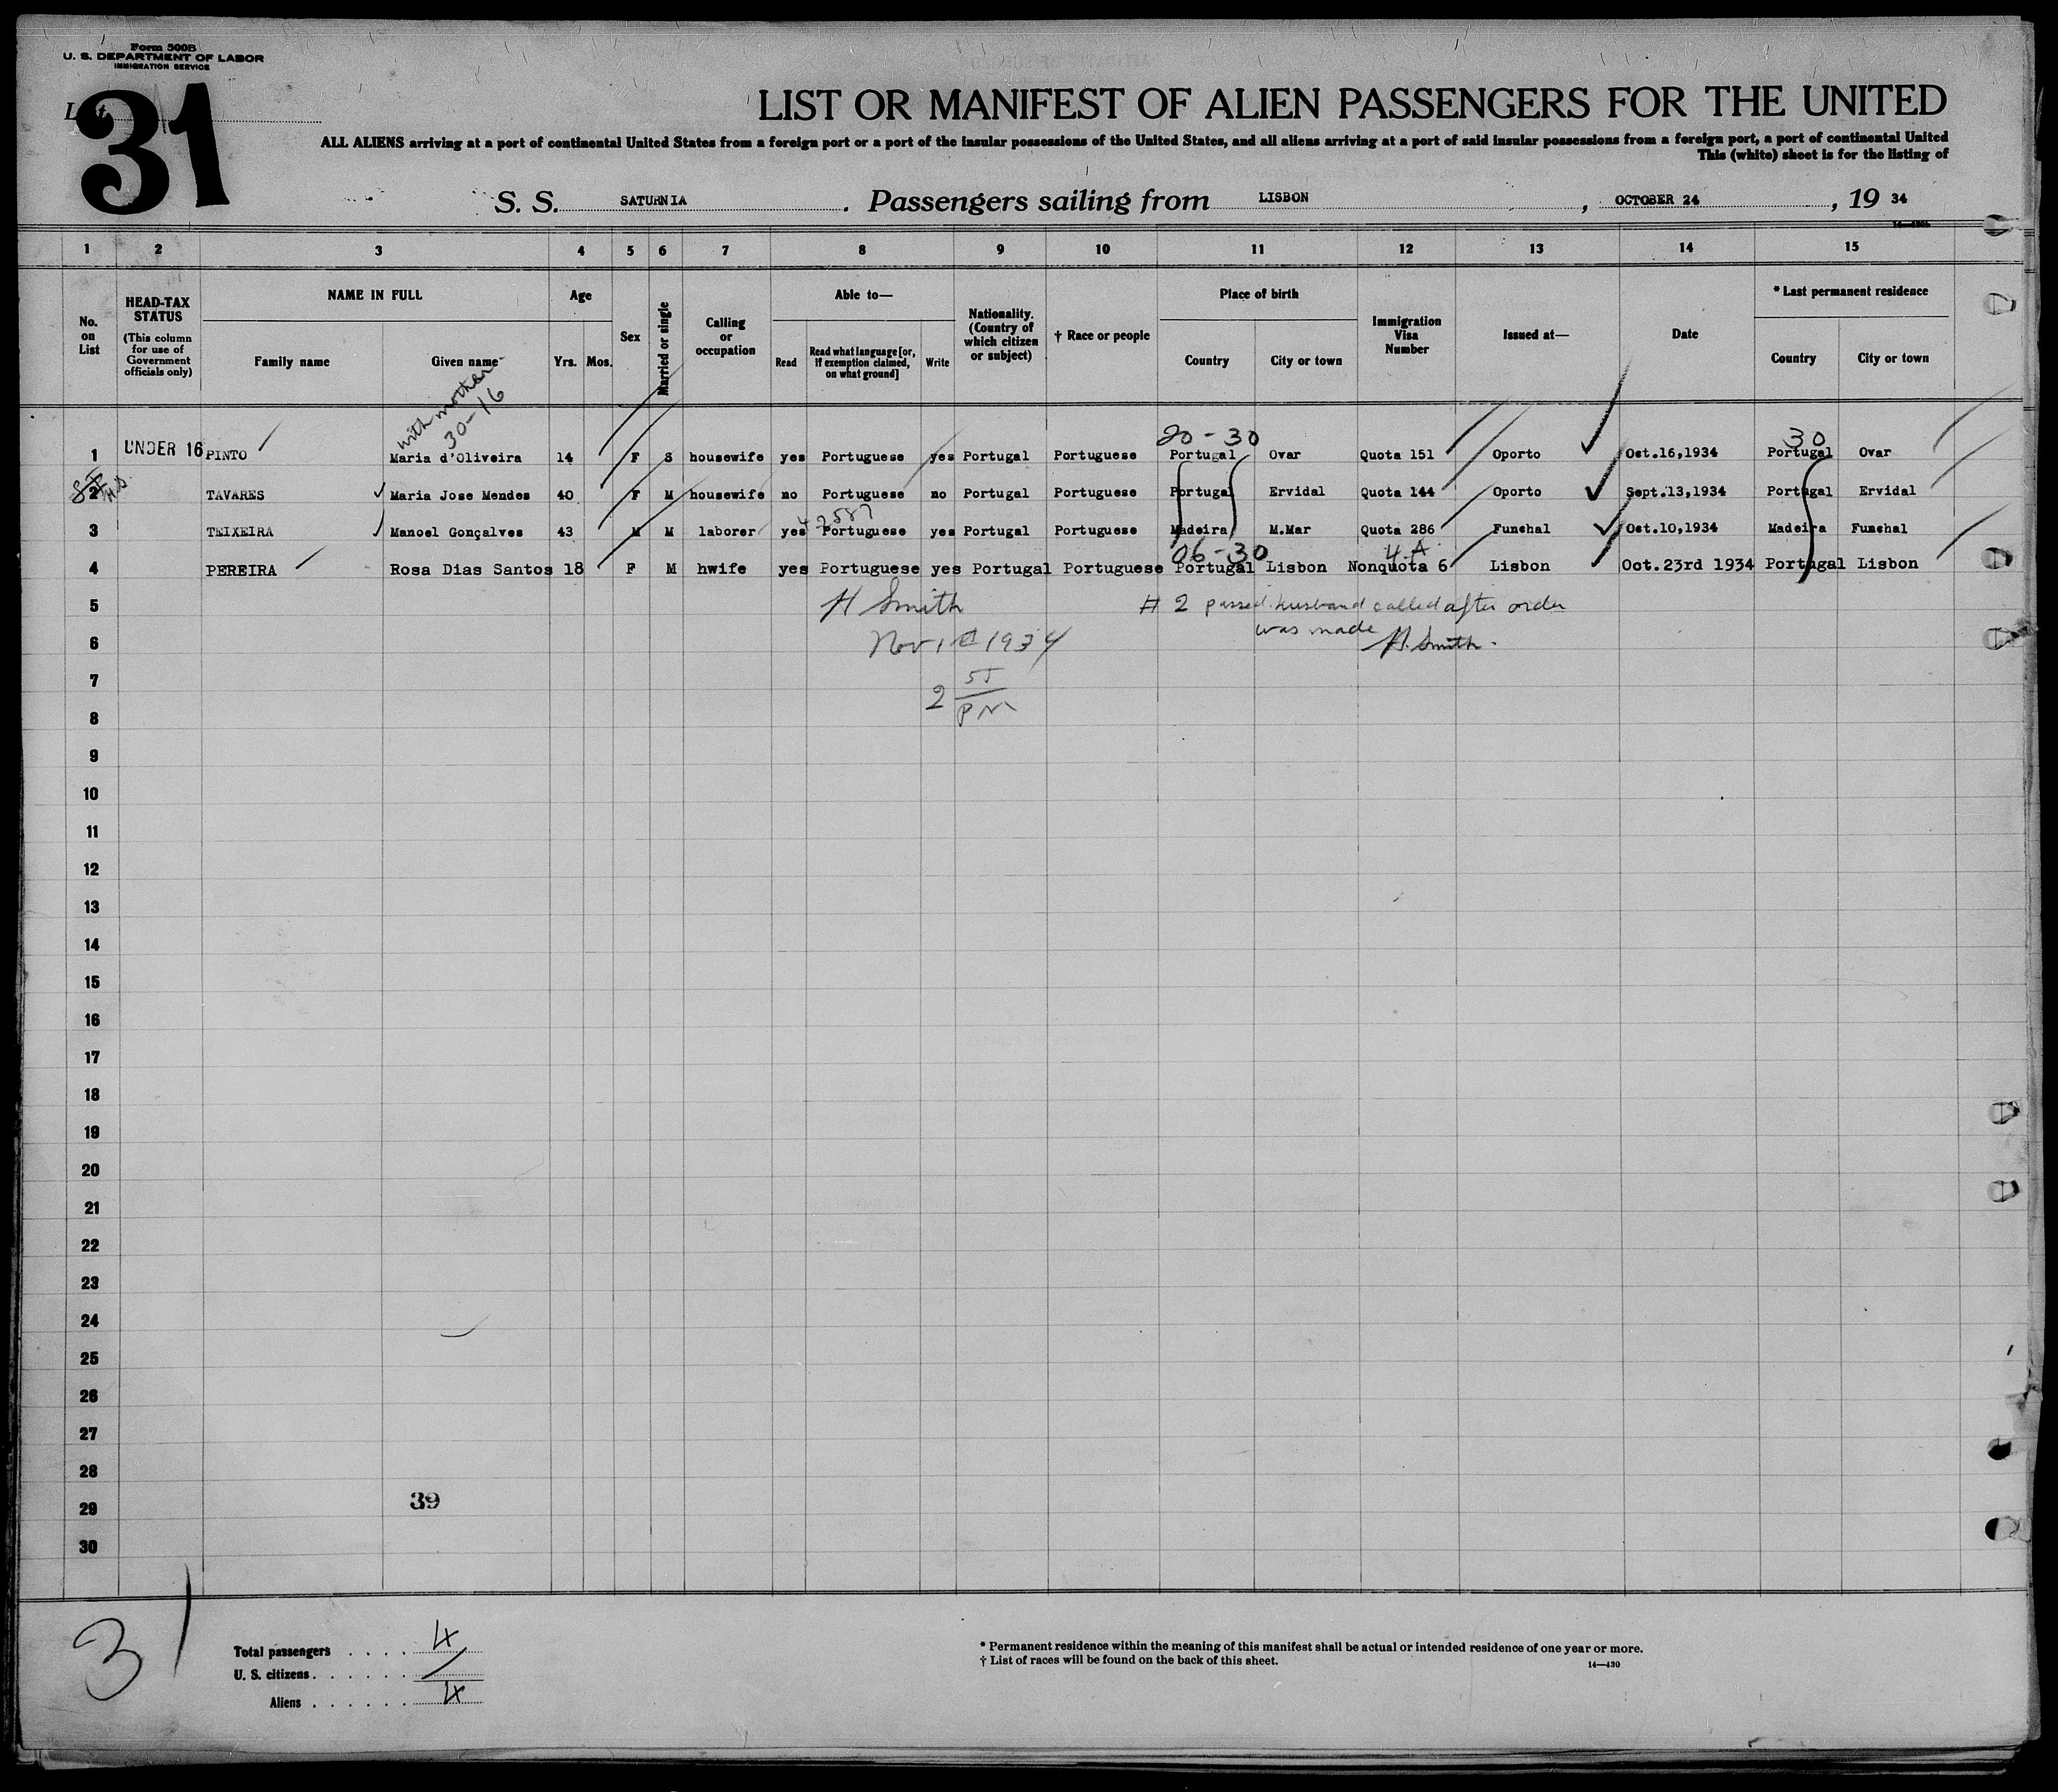 Form 500B
U. S. DEPARTMENT OF LABOR
IMMIGRATION SERVICE
List
31
LIST OR MANIFEST OF ALIEN PASSENGERS FOR THE UNITED
ALL ALIENS arriving at a port of continental United States from a foreign port or a port of the insular possessions of the United States, and all aliens arriving at a port of said insular possessions from a foreign port, a port of continental United
This (white) sheet is for the listing of
S. S. SATURNIA . Passengers sailing from LISBON , OCTOBER 24 , 19 34
1 2 3 4 5 6 7 8 9 10 11 12 13 14 15
No. on List
HEAD-TAX STATUS
(This column for use of Government officials only)
NAME IN FULL
Family name
Given name
Age
Yrs. Mos.
Sex
Married or single
Calling or occupation
Able to—
Read
Read what language [or, if exemption claimed, on what ground]
Write
Nationality. (Country of which citizen or subject)
† Race or people
Place of birth
Country
City or town
Immigration Visa Number
Issued at—
Date
* Last permanent residence
Country
City or town
with mother
30-16
20-30
30
1 UNDER 16 PINTO Maria d'Oliveira 14 F S housewife yes Portuguese yes Portugal Portuguese Portugal Ovar Quota 151 Oporto Oct.16,1934 Portugal Ovar
2 TAVARES Maria Jose Mendes 40 F M housewife no Portuguese no Portugal Portuguese Portugal Ervidal Quota 144 Oporto Sept.13,1934 Portugal Ervidal
3 TEIXEIRA Manoel Gonçalves 43 M M laborer yes Portuguese yes Portugal Portuguese Madeira M.Mar Quota 286 Funchal Oct.10,1934 Madeira Funchal
06-30
4.A
4 PEREIRA Rosa Dias Santos 18 F M hwife yes Portuguese yes Portugal Portuguese Portugal Lisbon Nonquota 6 Lisbon Oct.23rd 1934 Portugal Lisbon
5 H Smith # 2 passed. husband called after order
was made H. Smith.
6 Nov 1 1934
7 2 55
PM
8
9
10
11
12
13
14
15
16
17
18
19
20
21
22
23
24
25
26
27
28
29 39
30
31
Total passengers . . . . 4
U. S. citizens . . . . . .
Aliens . . . . . . 4
* Permanent residence within the meaning of this manifest shall be actual or intended residence of one year or more.
† List of races will be found on the back of this sheet.
14—430